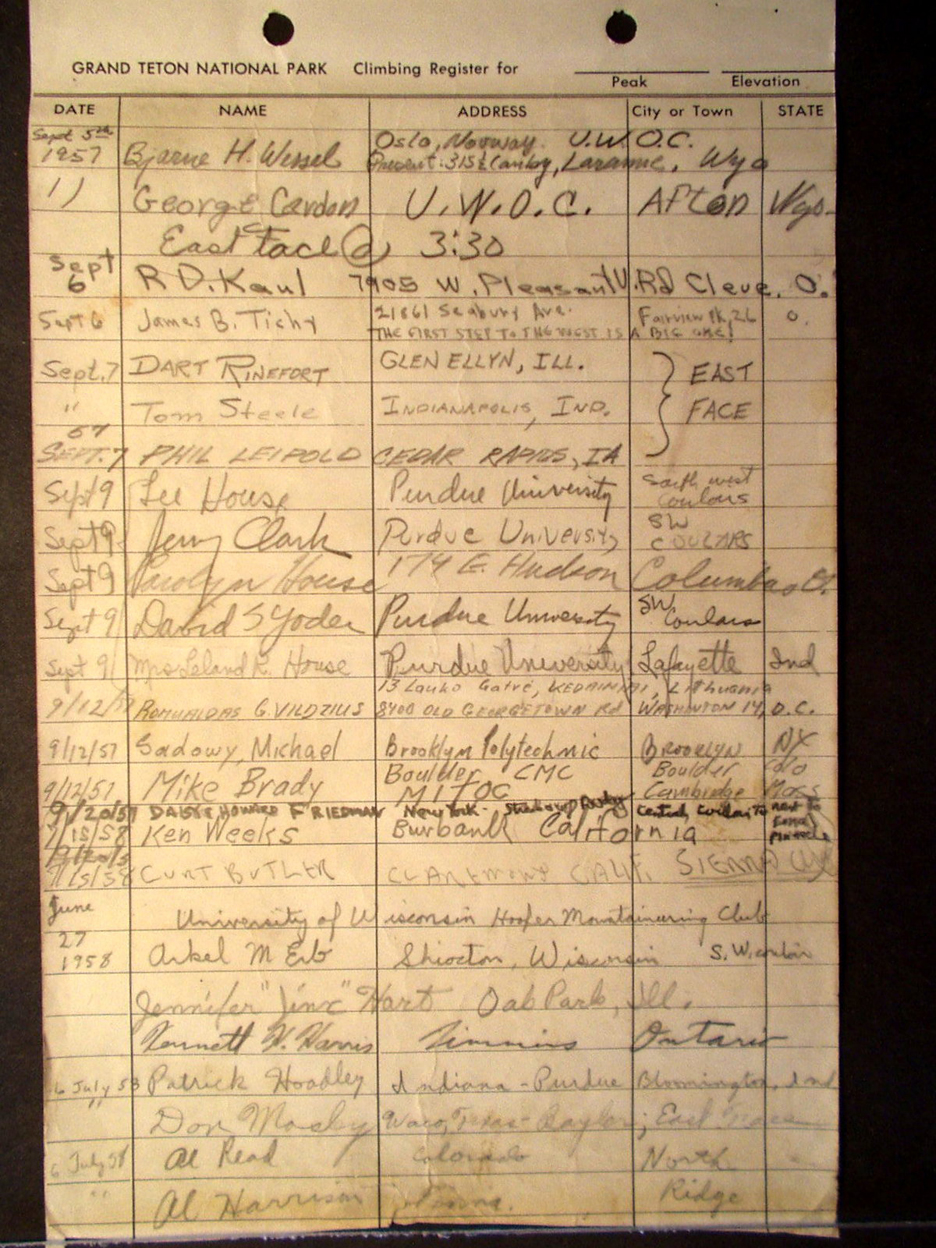 GRAND TETON NATIONAL PARK Climbing Register for
Peak Elevation
DATE NAME ADDRESS City or Town STATE
Sept 5th Oslo, Norway. U.W.O.C.
1957 Bjarne H. Wessel Present: 315 E Canby, Laramie, Wyo
11 George Cardon U.W.O.C. Afton Wyo.
East face @ 3:30
Sept 6 R D. Kaul 7905 W. Pleasant V. Rd Cleve. O.
Sept 6 James B. Tichy 21861 Seabury Ave. Fairview Pk, 26 O.
THE FIRST STEP TO THE WEST IS A BIG ONE!
Sept. 7 DART RINEFORT GLEN ELLYN, ILL. EAST
" Tom Steele INDIANAPOLIS, IND. FACE
57
SEPT. 7 PHIL LEIPOLD CEDAR RAPIDS, IA
Sept 9 Lee House Purdue University South west Coulars
Sept 9 Jerry Clark Purdue University SW COULARS
Sept 9 Carolyn House 174 E. Hudson Columbus O.
Sept 9 David S Yoder Purdue University SW Coulars
Sept 9 Mrs Leland R. House Purdue University Lafayette Ind
13 Lauko Gatvė, KEDAINIAI, Lithuania
9/12/57 ROMUALDAS G. VILDZIUS 8400 OLD GEORGETOWN Rd WASHINTON 14, D.C.
9/12/57 Sadowy, Michael Brooklyn Polytechnic BROOKLYN NY
Boulder CMC Boulder Colo
9/12/57 Mike Brady MITOC Cambridge Mass
9/20/57 DAISY HOWARD FRIEDMAN New York - Central next to
7/15/58 Ken Weeks Burbank California
7/15/58 CURT BUTLER CLAREMONT CALIF. SIERRA
June University of Wisconsin Hoofer Mountaineering Club
27
1958 Arkel M Erb Shiocton, Wisconsin S.W.
Jennifer "Jinx" Hart Oak Park, Ill.
Kennett W. Harris Timmins Ontario
6 July 58 Patrick Hoadley Indiana - Purdue Bloomington, Ind
" Don Mosby Waco, Texas - Baylor; East Face
6 July 58 Al Read Colorado North
" Al Harrison Ridge